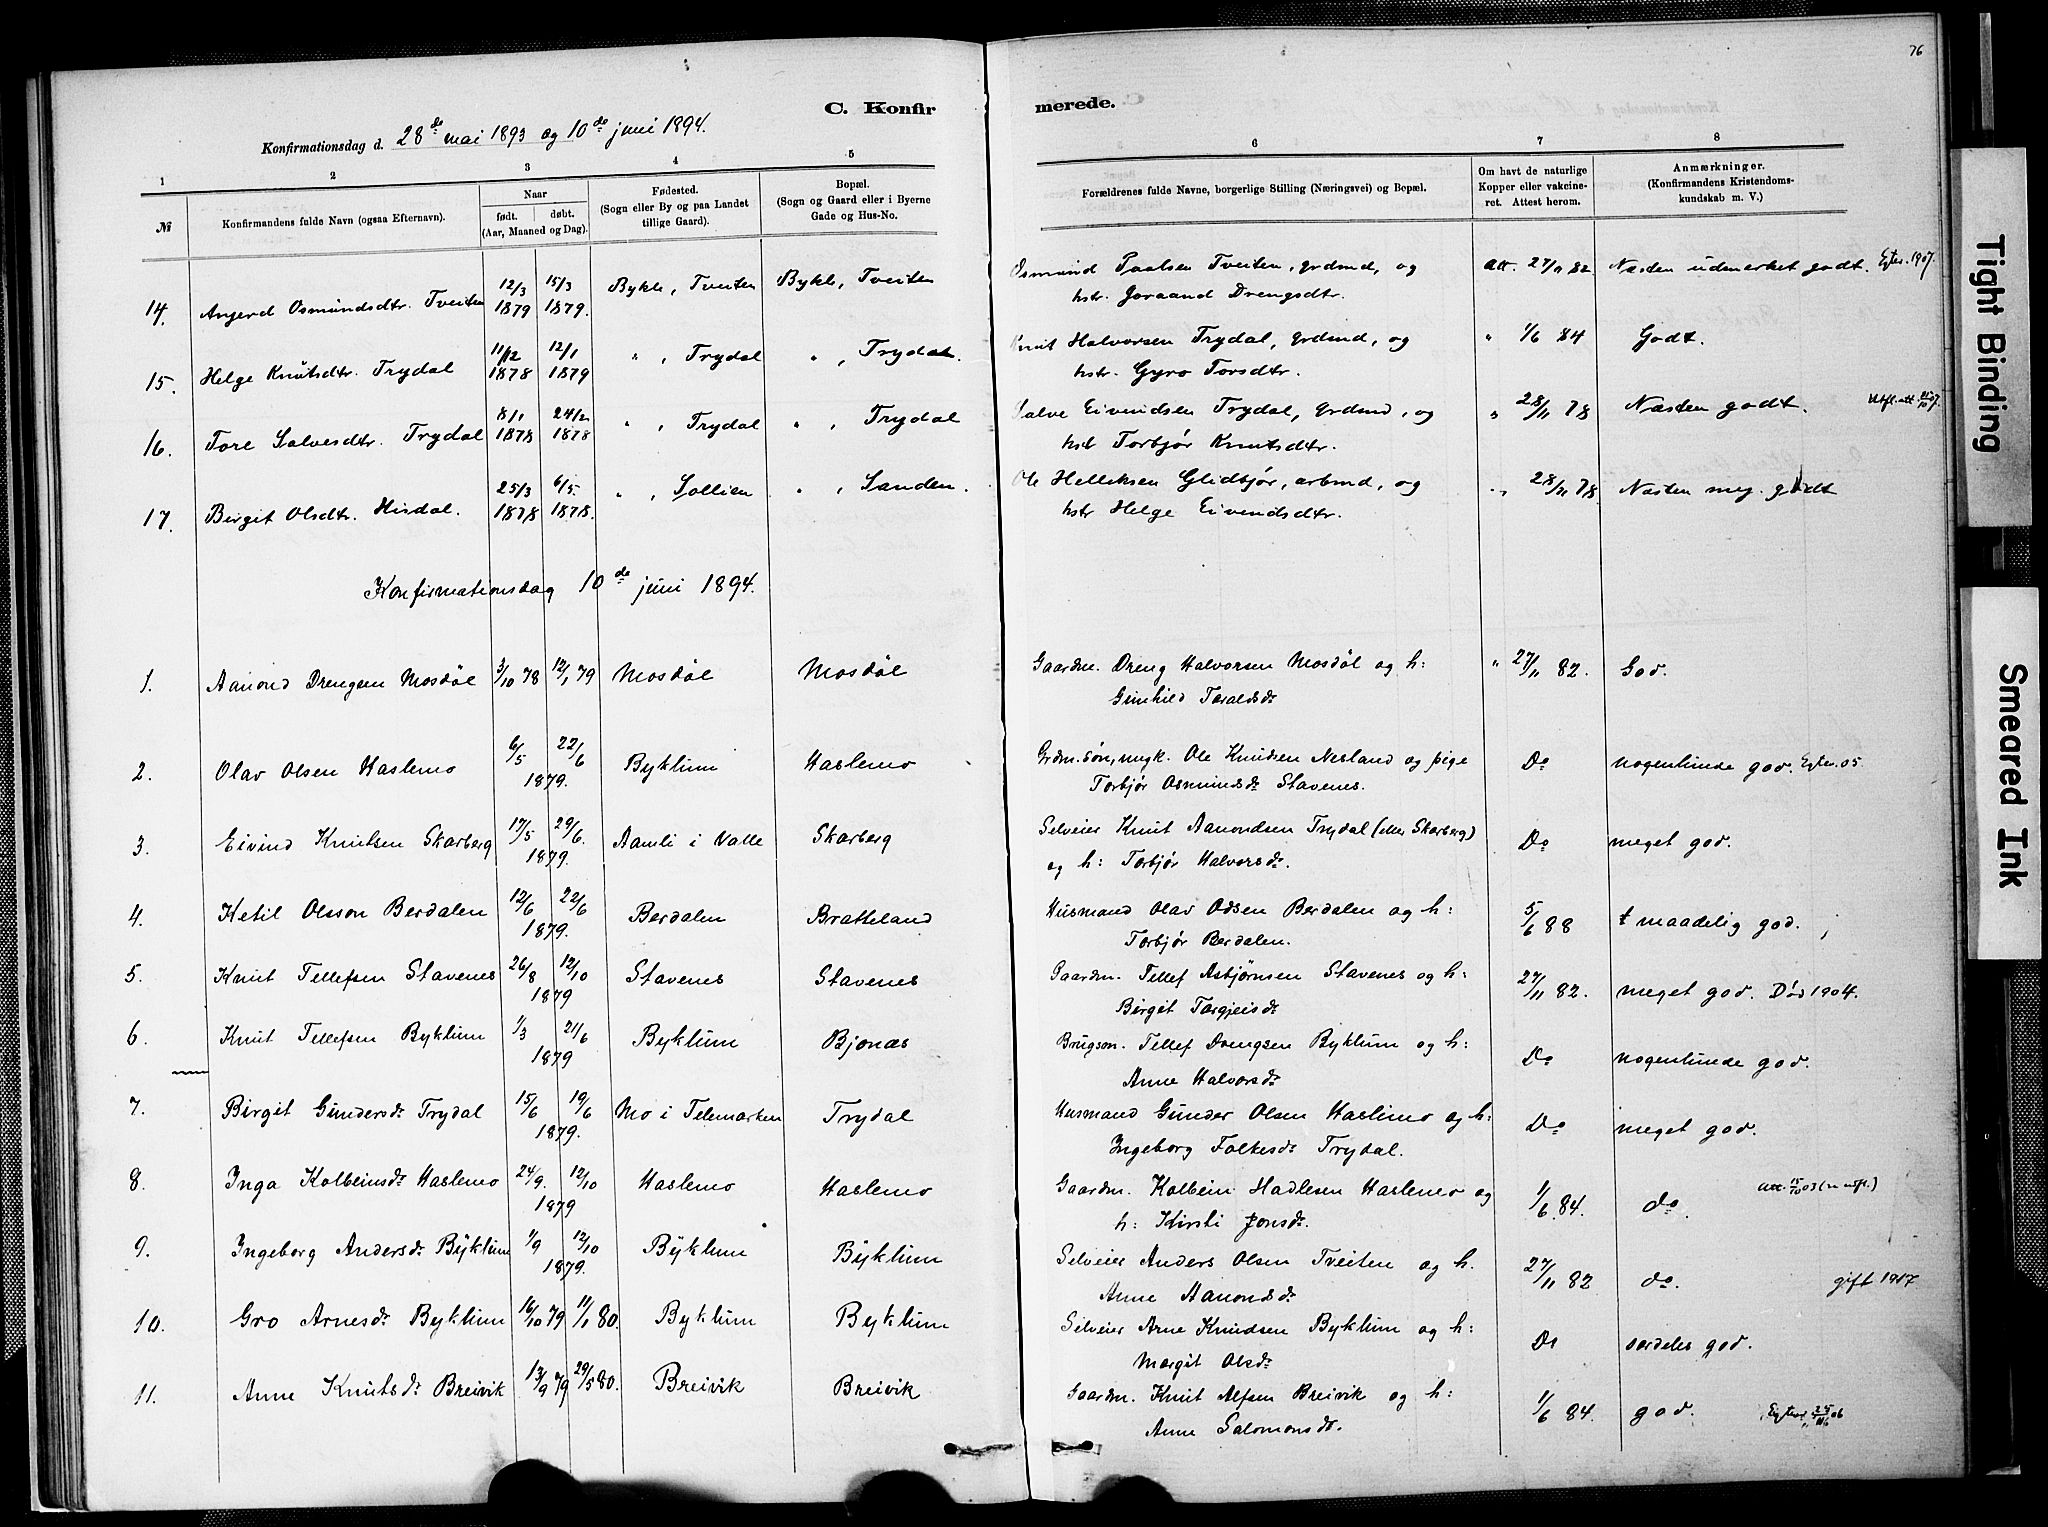 76
C. Konfir
merede.
Konfirmationsdag d. 28de mai 1893 og 10de juni 1894.
1 2 3 4 5 6 7 8
№
Konfirmandens fulde Navn (ogsaa Efternavn).
Naar
født. døbt.
(Aar, Maaned og Dag).
Fødested.
(Sogn eller By og paa Landet
tillige Gaard).
Bopæl.
(Sogn og Gaard eller i Byerne
Gade og Hus-No.
Forældrenes fulde Navne, borgerlige Stilling (Næringsvei) og Bopæl.
Om havt de naturlige
Kopper eller vakcine-
ret. Attest herom.
Anmærkninger.
(Konfirmandens Kristendoms-
kundskab m. V.)
14. Angerd Osmundsdtr. Tveiten 12/3 1879 15/3 1879. Bykle, Tveiten Bykle, Tveiten Osmund Paalsen Tveiten, grdmd, og att. 27/11 82 Næsten udmærket godt. Egter. 1907.
hstr. Joraand Drengsdtr.
15. Helge Knutsdtr. Trydal 11/12 1878 12/1 1879 " , Trydal " , Trydal. Knut Halvorsen Trydal, grdmd, og " 1/6 84 Godt.
hstr. Gyro Torsdtr.
16. Tore Salvesdtr. Trydal 8/1 1878 24/2 1878 " , Trydal " , Trydal Salve Eivindsen Trydal, grdmd, og " 28/11 78 Næsten godt.
hst Torbjør Knutsdtr.
17. Birgit Olsdtr. Hisdal. 25/3 1878 6/5. 1878. " , Sollien " , Sanden. Ole Helliksen Glidbjør, arbmd, og " 28/11 78 Næsten meg. godt
hstr Helge Eivendsdtr.
Konfirmationsdag 10de juni 1894.
1. Aanond Drengsen Mosdøl 3/10 78 12/1 79 Mosdøl Mosdøl Gaardm. Dreng Halvorsen Mosdøl og h: " 27/11 82. God.
Gunhild Taraldsdr
2. Olav Olsen Haslemo 6/5 22/6 1879. Byklum Haslemo Grdm.søn, ungk. Ole Knudsen Nesland og pige Do nogenlunde god. Egter. 05
Torbjør Osmundsdr Stavenes.
3. Eivind Knutsen Skarberg 17/5 29/6. 1879. Aamli i Valle Skarberg Selveier Knut Aanondsen Trydal (eller Skarberg) Do meget god.
og h: Torbjør Halvorsdr.
4. Ketil Olsson Berdalen 12/6 22/6 1879. Berdalen Bratteland Husmand Olav Odsen Berdalen og h: 5/6 88 tmaadelig god.
Torbjør Berdalen.
5. Knut Tellefsen Stavenes 26/8 12/10 1879 Stavenes Stavenes Gaardm. Tellef Asbjørnsen Stavenes og h: 27/11 82. meget god. Død 1904.
Birgit Targjeisdr
6. Knut Tellefsen Byklum 1/3 21/6 1879 Byklum Bjonæs Brugsm. Tellef Drengsen Byklum og h: Do nogenlunde god.
Anne Halvorsdr
7. Birgit Gundersdr Trydal 15/6 19/6 1879. Mo i Telemarken Trydal Husmand Gunder Olsen Haslemo og h: Do meget god.
Ingeborg Folkesdr Trydal.
8. Inga Kolbeinsdr Haslemo 24/9. 12/10 1879 Haslemo Haslemo Gaardm. Kolbein Hadlesen Haslemo og 1/6. 84. do. Att. 15/10 03
h: Kirsti Jonsdr.
9. Ingeborg Andersdr Byklum 1/9 12/10 1879. Byklum Byklum Selveier Anders Olsen Tveiten og h. 27/11 82 do. gift 1907
Anne Aanondsdr
10. Gro Arnesdr Byklum 16/10 79 11/1 80. Byklum Byklum Selveier Arne Knudsen Byklum og h: Do særdeles god.
Margit Olsdr
11. Anne Knutsdr Breivik 13/9 79 29/5 80. Breivik Breivik Gaardm. Knut Alfsen Breivik og h: 1/6 84. god.
Anne Salomonsdr.
Tight Binding
Smeared Ink